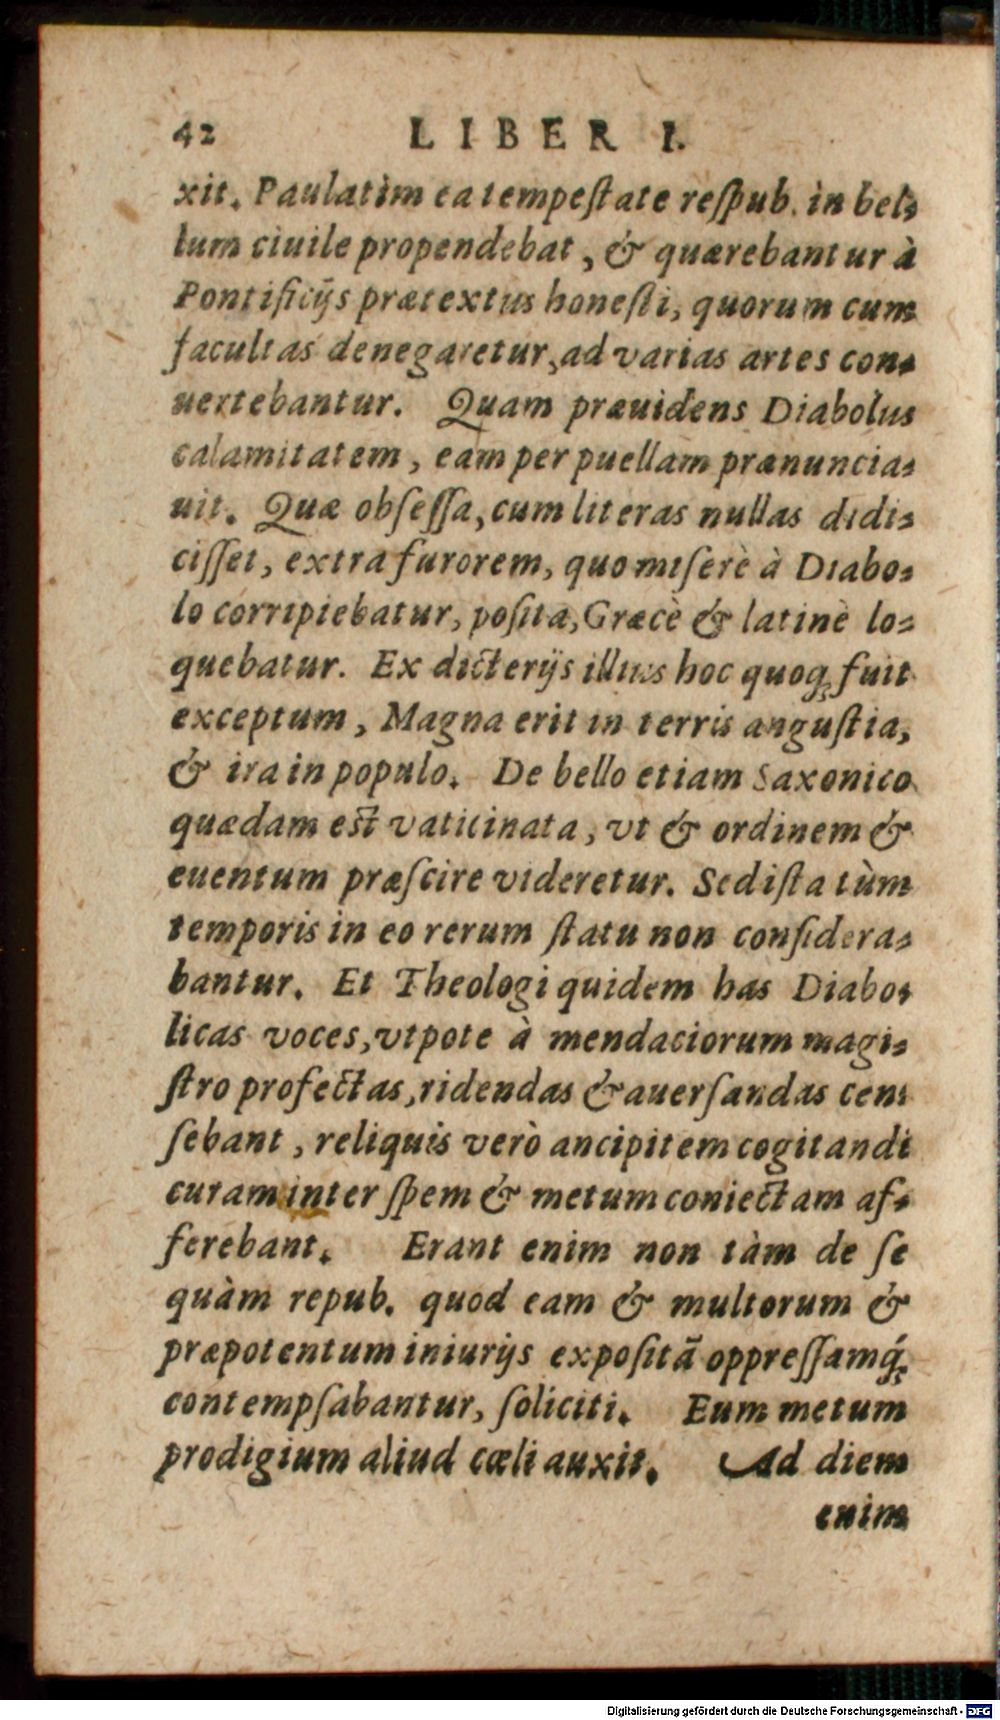 42 LIBER I.
xit. Paulatìm ea tempeſtate reſpub. in bel-
lum ciuile propendebat, & quærebantur à
Pontificijs prætextus honeſti, quorum cum
facultas denegaretur, ad varias artes con-
uertebantur. Quam præuidens Diabolus
calamitatem, eam per puellam prænuncia-
uit. Quæ obſeſſa, cum literas nullas didi-
ciſſet, extra furorem, quo miſerè à Diabo-
lo corripiebatur, poſita, Græcè & latinè lo-
quebatur. Ex dicterijs illius hoc quoq; fuit
exceptum, Magna erit in terris anguſtia,
& ira in populo. De bello etiam Saxonico
quædam eſt vaticinata, vt & ordinem &
euentum præſcire videretur. Sed iſta tùm
temporis in eo rerum ſtatu non conſidera-
bantur. Et Theologi quidem has Diabo-
licas voces, vtpote à mendaciorum magi-
ſtro profectas, ridendas & auerſandas cen-
ſebant, reliquis verò ancipitem cogitandi
curam inter ſpem & metum coniectam af-
ferebant. Erant enim non tàm de ſe
quàm repub. quod eam & multorum &
præpotentum iniurijs expoſitã oppreſſamq́;
contempſabantur, ſoliciti. Eum metum
prodigium aliud cæli auxit. Ad diem
enim
Digitalisierung gefördert durch die Deutsche Forschungsgemeinschaft - DFG